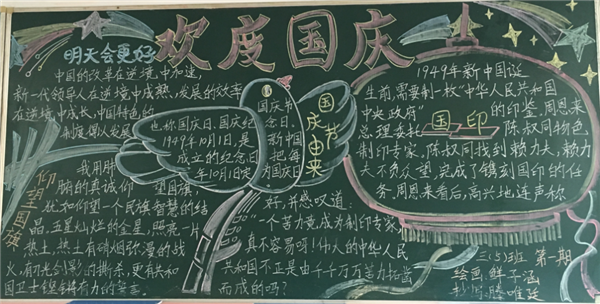 欢度国庆
明天会更好
中国的改革在逆境中加速,
新一代领导人在逆境中成熟,发展的效率
在逆境中成长,中国特色的
制度
国庆节由来
也称国庆日、国庆纪
1949年10月1日,是
成立的纪念日
年10月1日定
国庆节
念日。
新中国
把每
为国庆日
仰望国旗
我用肺
腑的真诚仰望国旗,
犹如仰望一个民族智慧的结
晶,五星灿烂的金星,照亮一片
热土,热土有硝烟弥漫的战
火,有刀光剑影的撕杀,更有共和
国卫士
国印
1949年新中国诞
生前,需要制一枚“中华人民共和国
中央政府”的印鉴,周恩来
总理委托陈叔同物色
制印专家,陈叔同找到
夫不负众望,完成了镌刻国印的任
务,周恩来看后,高兴地连声称
好,并感叹道:
“一个苦力竟成为制印专家
真不容易啊!伟大的中华人民
共和国不正是由千千万万
而成的吗?
三(5)班 第一期
绘画:
抄写: